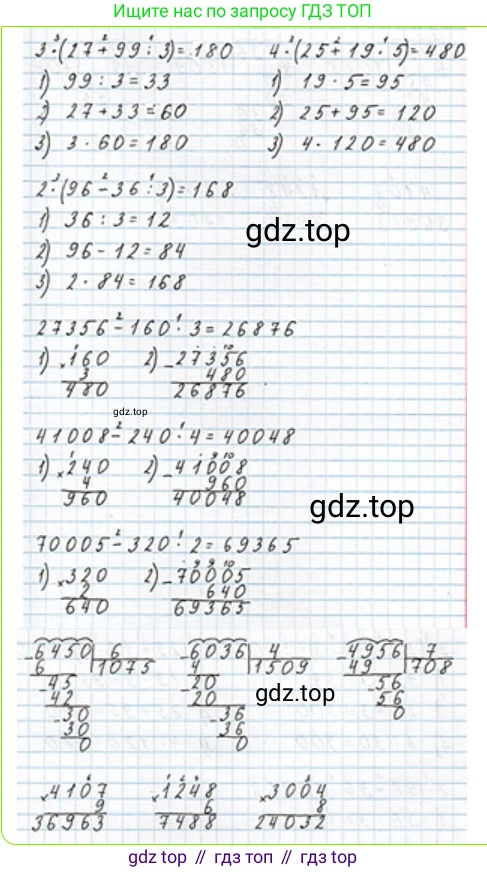 Ищите нас по запросу ГДЗ ТОП
3·(27+99:3)=180
4·(25+19·5)=480
1) 99:3=33
1) 19·5=95
2) 27+33=60
2) 25+95=120
3) 3·60=180
3) 4·120=480
2·(96-36:3)=168
1) 36:3=12
2) 96-12=84
3) 2·84=168
gdz.top
27356-160·3=26876
1) ×160
3
480
2) -27356
480
26876
gdz.top
41008-240·4=40048
1) ×240
4
960
2) -41008
960
40048
gdz.top
70005-320·2=69365
1) ×320
2
640
2) -70005
640
69365
-6450 6
6 1075
-45
42
-30
30
0
-6036 4
4 1509
-20
20
-36
36
0
gdz.top
-4956 7
49 708
-56
56
0
×4107
9
36963
×1248
6
7488
×3004
8
24032
gdz.top // гдз топ // gdz top